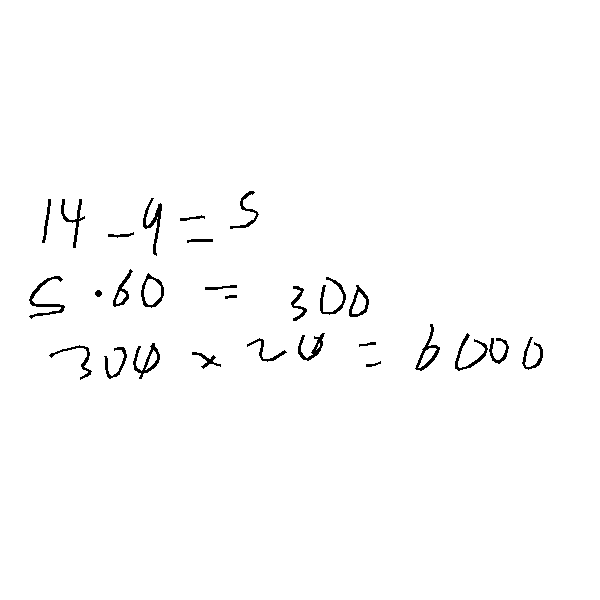 14 - 9 = 5
5 · 60 = 300
300 × 20 = 6000